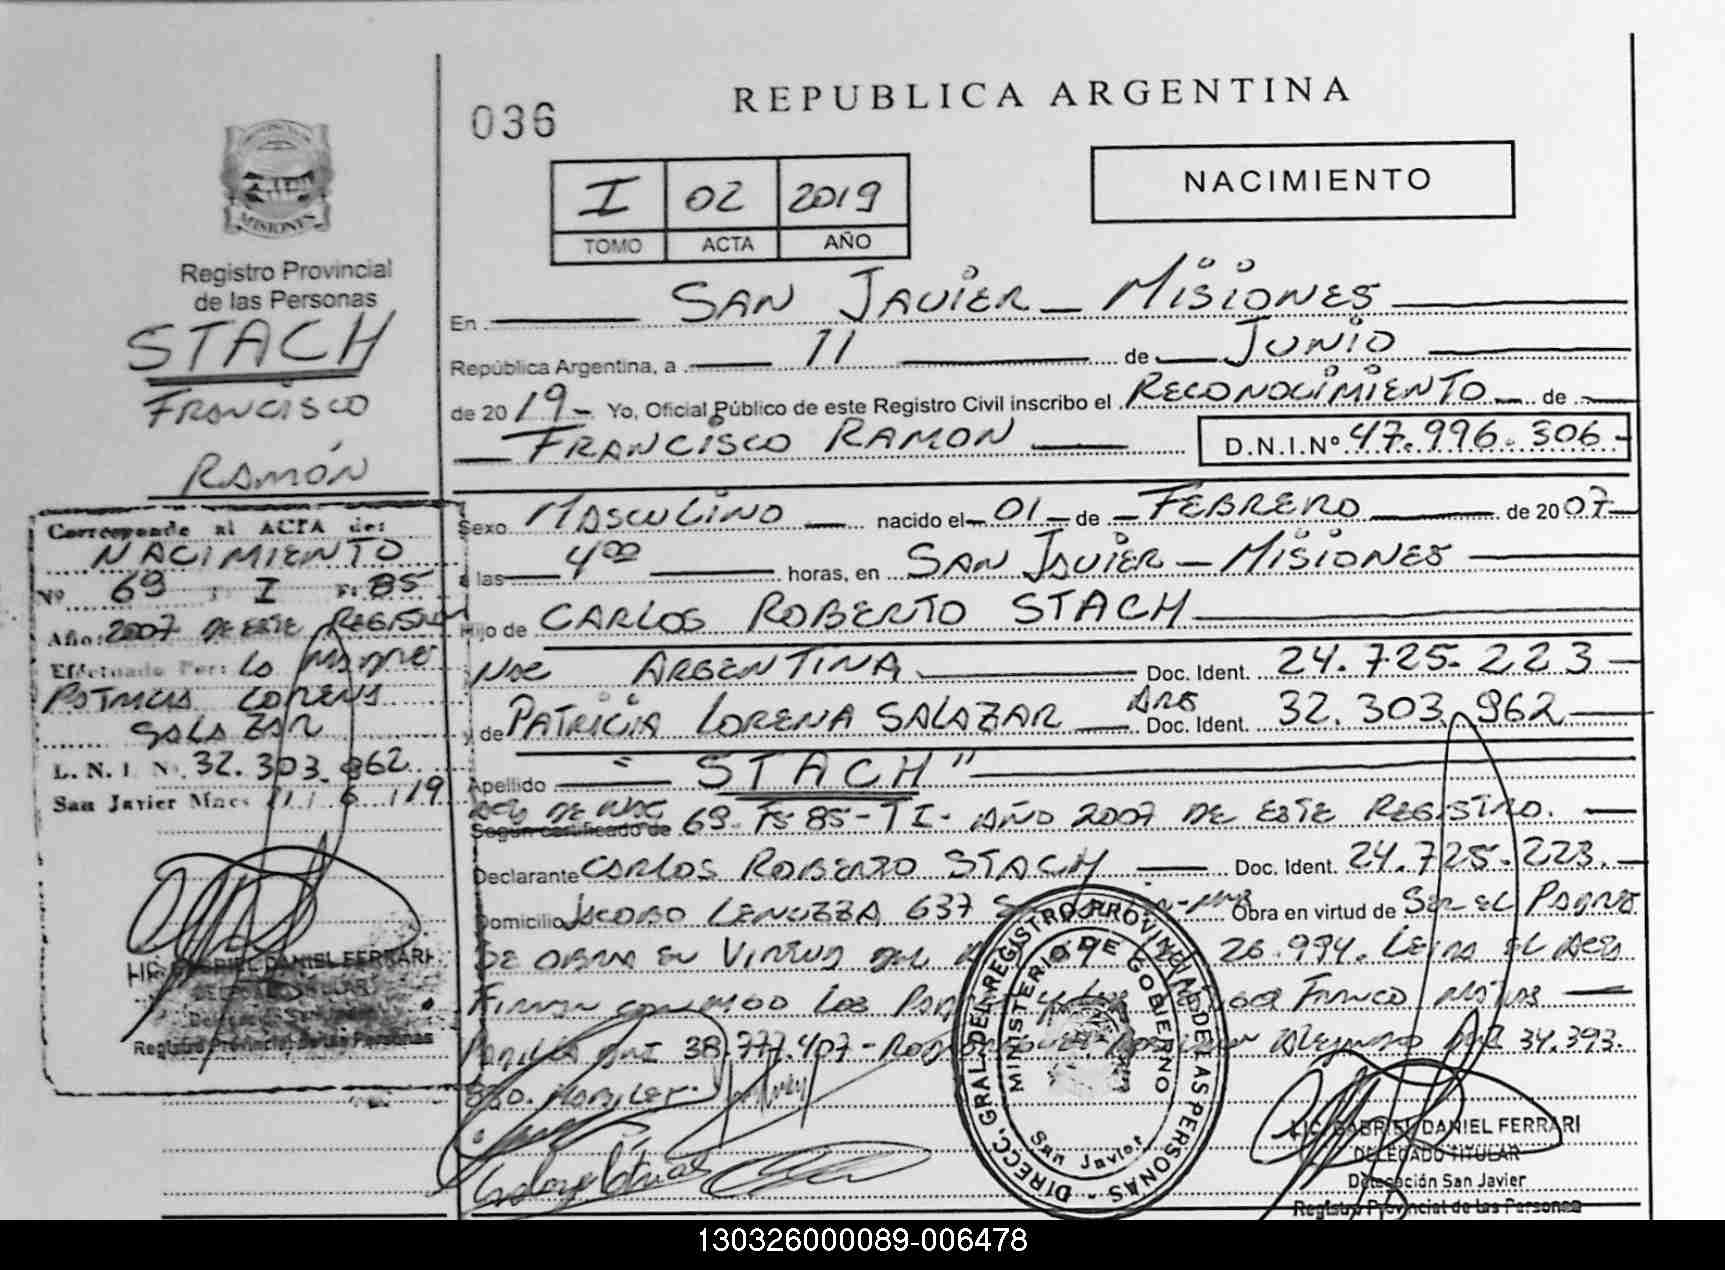 REPUBLICA ARGENTINA
036
I 02 2019
TOMO ACTA AÑO
NACIMIENTO
MISIONES
Registro Provincial
de las Personas
STACH
FRANCISCO
RAMÓN
En SAN JAVIER - MISIONES
República Argentina, a 11 de JUNIO
de 2019 - Yo, Oficial Público de este Registro Civil inscribo el RECONOCIMIENTO de
FRANCISCO RAMON D.N.I.Nº 47.996.306-
Sexo MASCULINO nacido el 01 de FEBRERO de 2007
a las 4 00 horas, en SAN JAVIER - MISIONES
Hijo de CARLOS ROBERTO STACH
Nac ARGENTINA Doc. Ident. 24.725.223
y de PATRICIA LORENA SALAZAR ARG Doc. Ident. 32.303.962
Apellido "STACH"
Según certificado de 69- Fº 85- T I- AÑO 2007 DE ESTE REGISTRO.
Declarante CARLOS ROBERTO STACH Doc. Ident. 24.725.223.
Domicilio JACOBO LENUZZA 637 Obra en virtud de SER EL PADRE
DE OBRA EN VIRTUD DEL 26.994. LEIDA EL ACTA
FIRMAN CONMIGO LOS FRANCO
DNI 38.777.407- DNI 34.393.
Corresponde al ACTA de:
NACIMIENTO
Nº 69 T: I F: 85
Año: 2007 DE ESTE REGISTRO
Efectuado Por: LA MADRE
PATRICIA LORENA
SALAZAR
L. N. I N. 32.303.962
San Javier Mnes 11/6/19
LIC. GABRIEL DANIEL FERRARI
DELEGADO TITULAR
Delegación San Javier
Registro Provincial de las Personas
DIRECC. GRAL. DEL REGISTRO PROVINCIAL DE LAS PERSONAS -
MINISTERIO DE GOBIERNO
San Javier
LIC. GABRIEL DANIEL FERRARI
DELEGADO TITULAR
Delegación San Javier
Registro Provincial de las Personas
130326000089-006478